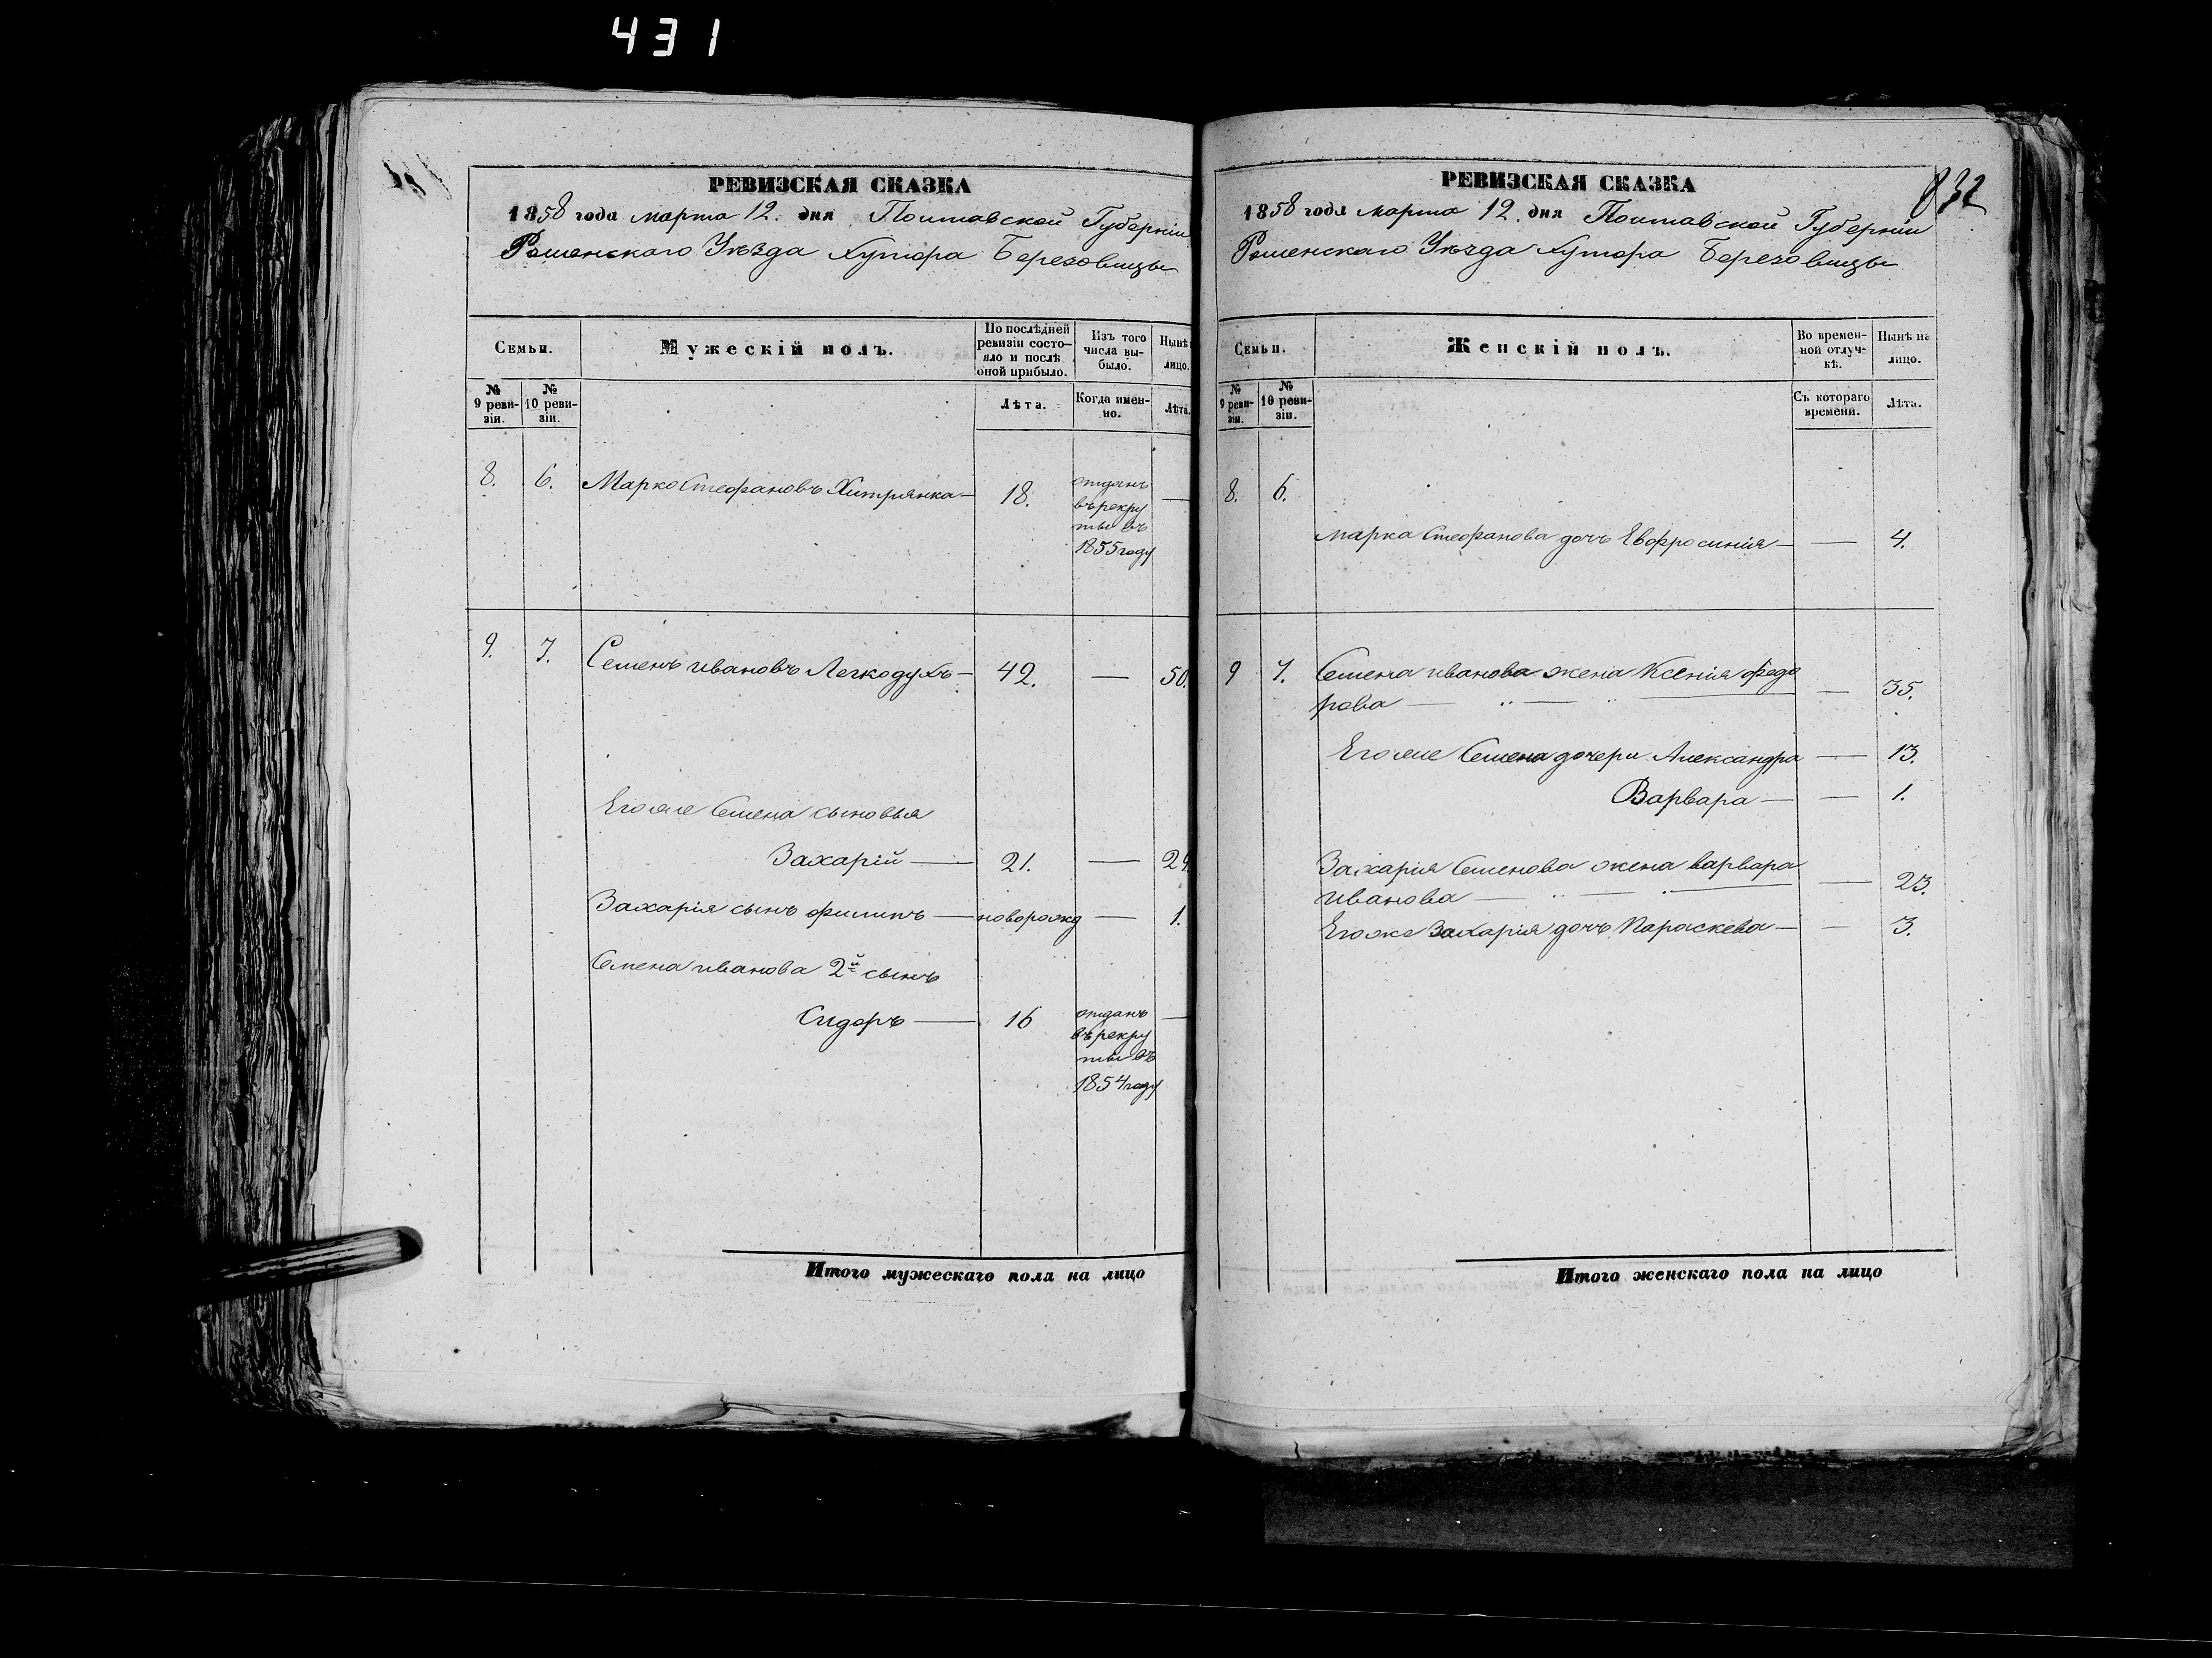 431
РЕВИЗСКАЯ СКАЗКА
1858 года марта 12. дня Полтавской Губерніи
Роменскаго Уѣзда Хутора Березовицы
Семьи.
Мужескій полъ.
По послѣдней ревизіи состо-
яло и послѣ
оной прибыло.
Изъ того
числа вы-
было.
Нынѣ
лицо.
№
9 реви-
зіи.
№
10 реви-
зіи.
Лѣта.
Когда имен-
но.
Лѣта.
8. 6. Марко Стефановъ Хитрянка — 18. отданъ —
въ рекру
ты въ
1855 году
9. 7. Семенъ ивановъ Легкодухъ — 42. — 50.
Егоже Семена сыновья
Захарій — 21. — 29.
Захарія сынъ филипъ — новорожд — 1.
Семена иванова 2й сынъ
Сидоръ — 16 отданъ —
въ рекру
ты въ
1854 году
Итого мужескаго пола на лицо
832
РЕВИЗСКАЯ СКАЗКА
1858 года марта 12. дня Полтавской Губерніи
Роменскаго Уѣзда Хутора Березовицы
Семьи.
Женскій полъ.
Во времен-
ной отлуч-
кѣ.
Нынѣ на
лицо.
№
9 реви-
зіи.
№
10 реви-
зіи.
Съ котораго
времени.
Лѣта.
8. 6.
марка Стефанова дочь Евфросинія — — 4.
9 7. Семена иванова жена Ксенія федо
рова — — 35.
Егоже Семена дочери Александра — 13.
Варвара — — 1.
Захарія Семенова жена варвара
иванова — — 23.
Егоже Захарія дочь Параскева — — 3.
Итого женскаго пола на лицо